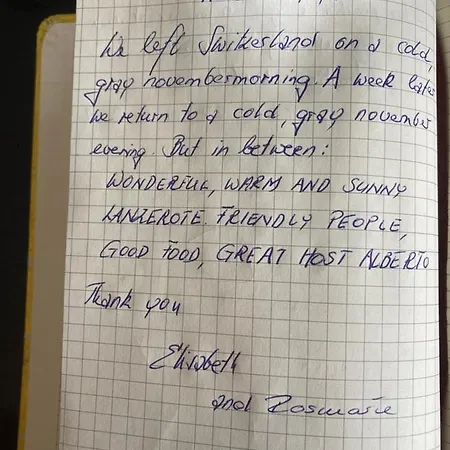 We left Switzerland on a cold,
gray novembermorning. A week later
we return to a cold, gray november
evening. But in between:
WONDERFUL, WARM AND SUNNY
LANZEROTE. FRIENDLY PEOPLE,
GOOD FOOD, GREAT HOST ALBERTO
Thank you
Elisabeth
and Rosmarie